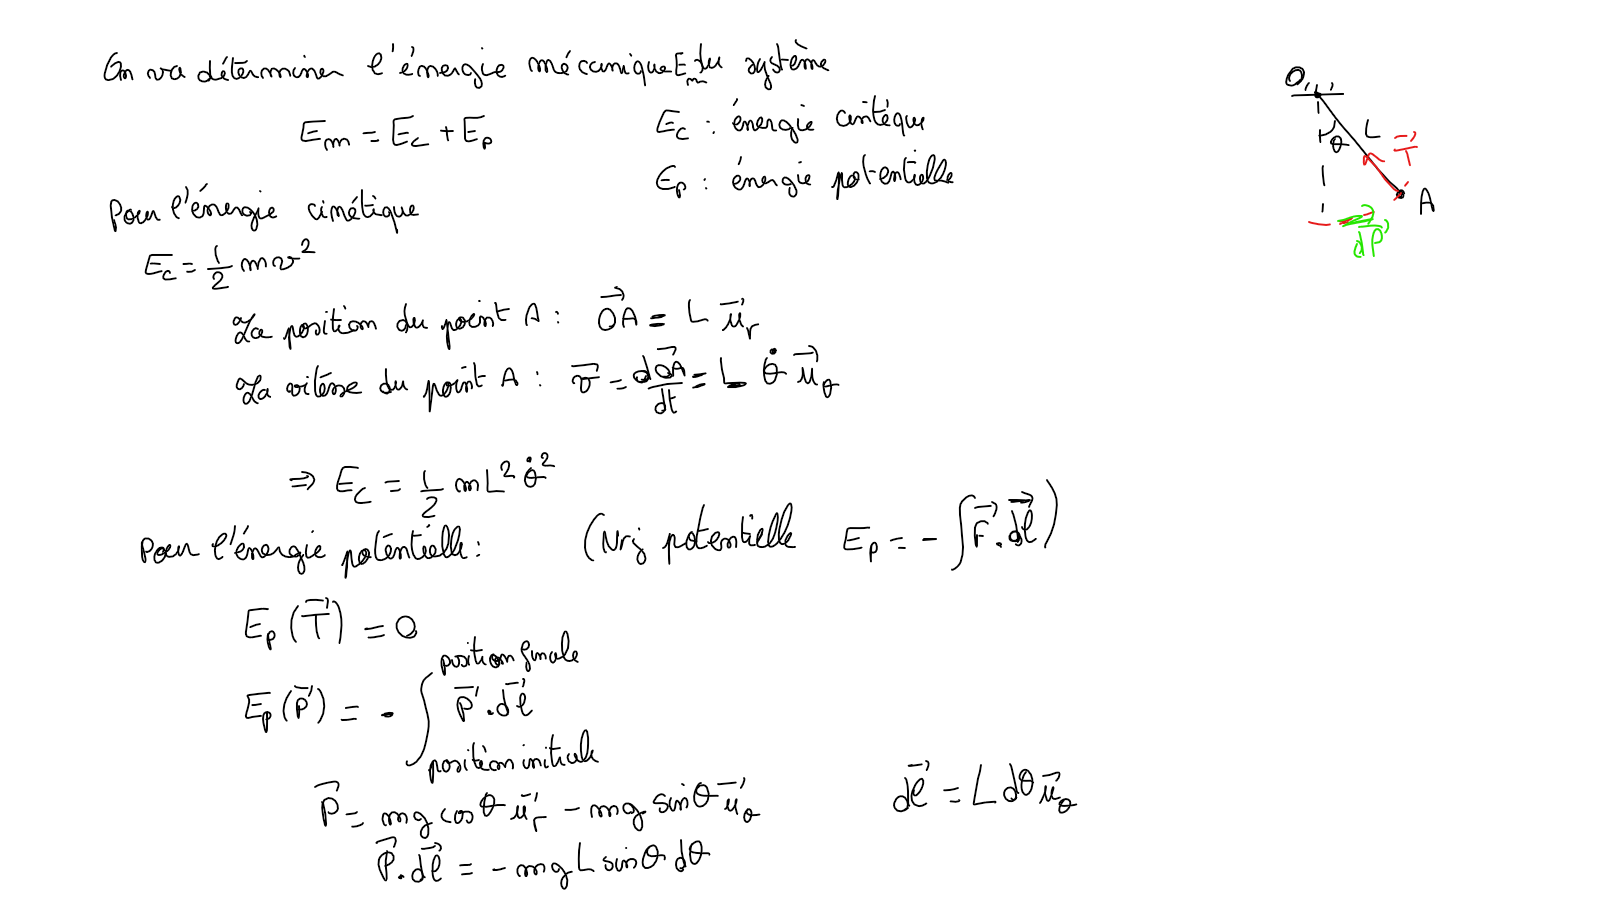 On va déterminer l'énergie mécanique E_m du système
E_m = E_c + E_p
E_c : énergie cinétique
E_p : énergie potentielle
Pour l'énergie cinétique
E_c = 1/2 mv²
La position du point A : \vec{OA} = L \vec{u}_r
La vitesse du point A : \vec{v} = d\vec{OA}/dt = L \dot{θ} \vec{u}_θ
⇒ E_c = 1/2 mL² \dot{θ}²
Pour l'énergie potentielle : (Nrj potentielle E_p = - ∫ \vec{F} . \vec{dl})
E_p (\vec{T}) = 0
position finale
E_p (\vec{P}) = - ∫ \vec{P} . \vec{dl}
position initiale
\vec{P} = mg cos θ \vec{u}_r - mg sin θ \vec{u}_θ
\vec{dl} = L dθ \vec{u}_θ
\vec{P} . \vec{dl} = - mg L sin θ dθ
O
θ
L
\vec{T}
A
\vec{dl}